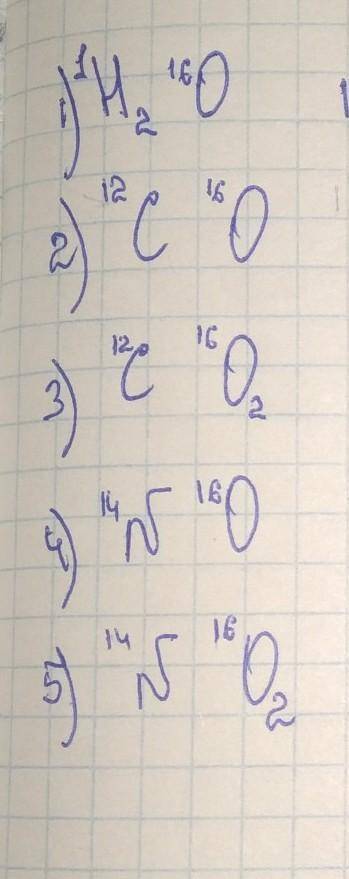 1) ¹H₂ ¹⁶O
2) ¹²C ¹⁶O
3) ¹²C ¹⁶O₂
4) ¹⁴N ¹⁶O
5) ¹⁴N ¹⁶O₂